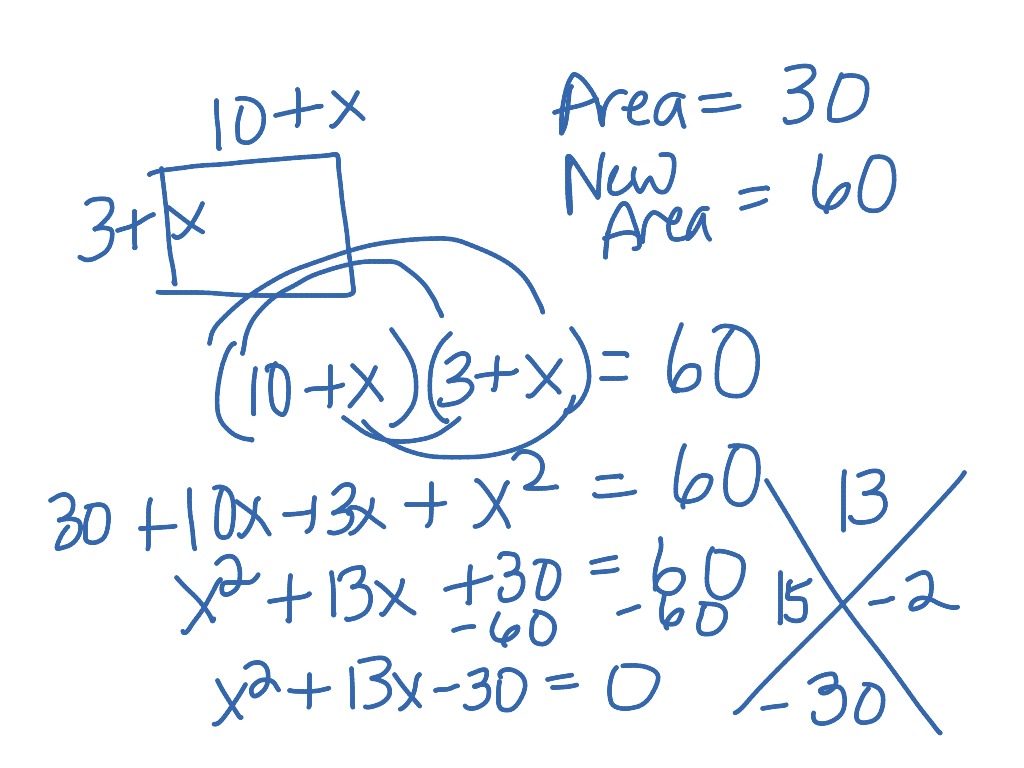 10+x
3+x
Area = 30
New Area = 60
(10+x)(3+x) = 60
30 +10x+3x + x² = 60
x² +13x +30 = 60
-60 -60
x² + 13x-30 = 0
13
15 -2
-30